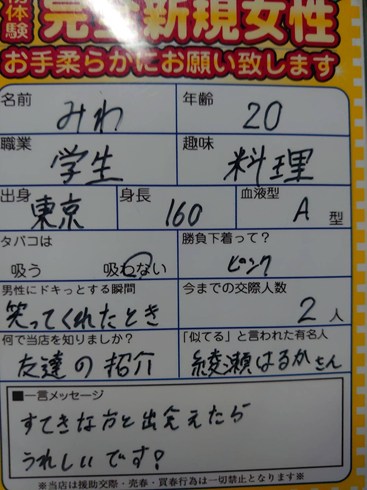 体験
完全新規女性
お手柔らかにお願い致します
名前 みわ 年齢 20
職業 学生 趣味 料理
出身 東京 身長 160 血液型 A 型
タバコは 吸う 吸わない 勝負下着って? ピンク
男性にドキっとする瞬間 笑ってくれたとき 今までの交際人数 2 人
何で当店を知りましたか? 友達の紹介 「似てる」と言われた有名人 綾瀬はるかさん
■一言メッセージ
すてきな方と出会えたら
うれしいです!
※当店は援助交際・売春・買春行為は一切禁止となります※